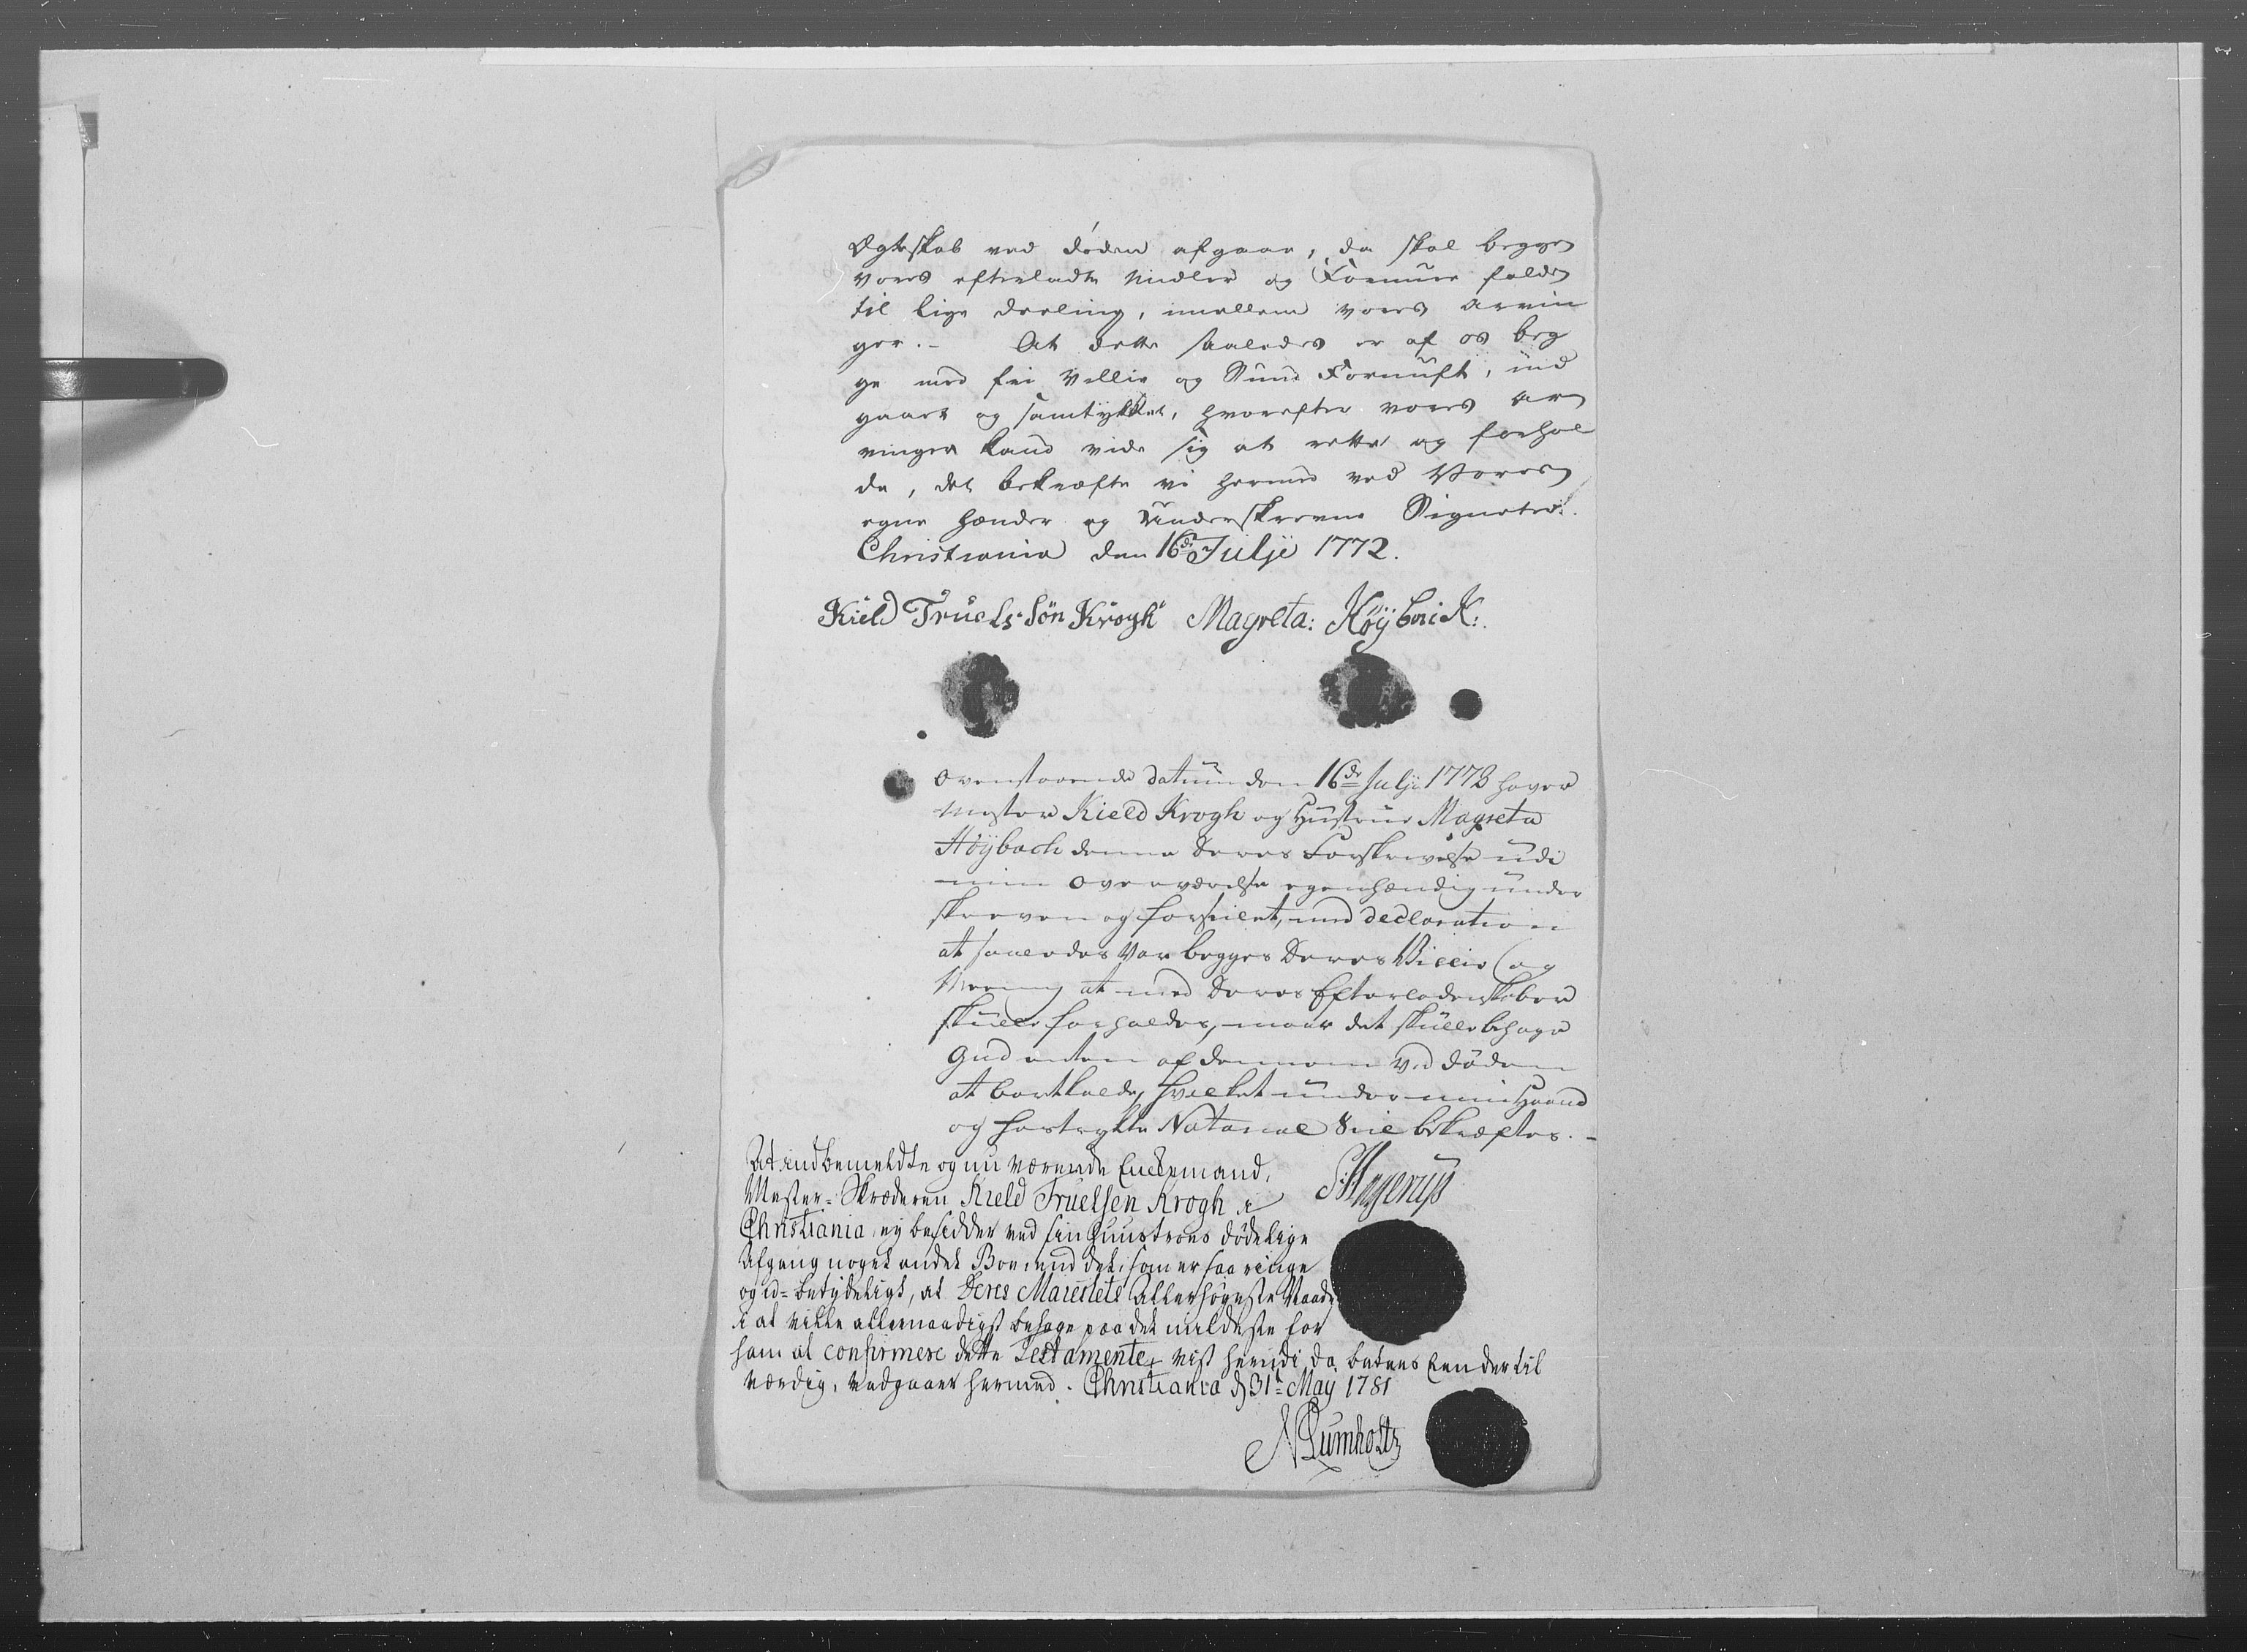 Ægteskab ved døden afgaar, da skal begge
vores efterladte Midler og Formue falde
til lige deeling, imellem vores arvin
ger. - At dette saaledes er af os beg
ge med fri Villie og Sund Fornuft, ind
gaaet og samtykket, hvorefter vores ar
vinger kand vide sig at rette og forhol
de, det bekræfte vi hermed ved Vores
egne hænder og underskrevne Signeter.
Christiania den 16de Julji 1772.
Kield Truels Søn Krogh Magreta: Høÿbaik:
Ovenstaaende datum den 16de Julji 1772 haver
Mester Kield Krogh og Hustrue Magreta
Høÿbach denne Deres Forskrivelse udi
min Overværelse egenhændig under
skreven og forseilet, med declaration
at saaledes var begges Deres Villie og
Meening at med Deres Efterladenskaber
skulle forholdes, naar det skulle behage
Gud enten af dennem ved døden
at bortkalde, hvilket under min Haand
og hostrykte Notarial Seil bekræftes. -
At indbemeldte og nu værende Enkemand,
Mester-Skræderen Kield Truelsen Krogh i
Christiania, ej besidder ved sin Huustrues dødelige
Afgang noget andet Boe, end det, som er saa ringe
og u-betydeligt, at Deres Maiestets Allerhøyeste Naade
i at ville allernaadigst behage paa det mildeste for
ham at confirmere dette Testamente, vist herudi da
værdig, vedgaaer hermed. Christiania d 31te Maÿ 1781
S: Hagerup
N Lumholtz